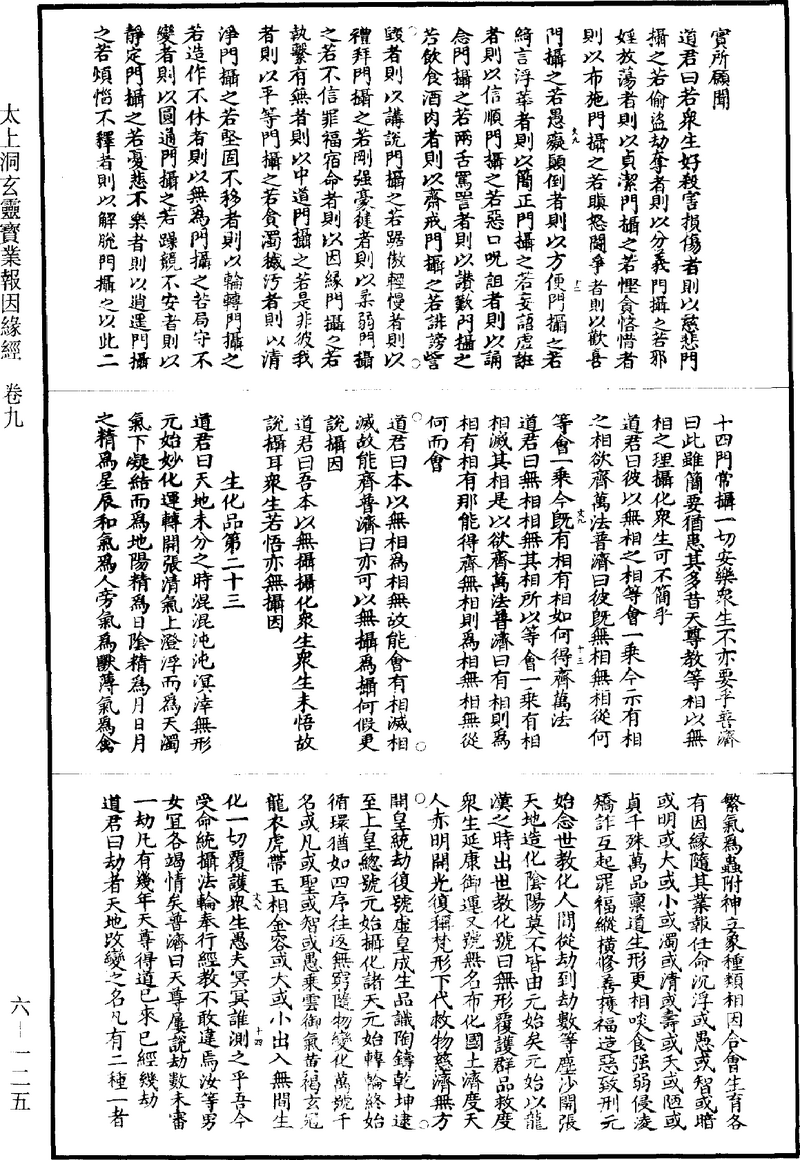 實所願聞
道君曰若衆生好殺害損傷者則以慈悲門
攝之若偷盜劫奪者則以分義門攝之若邪
婬放蕩者則以貞潔門攝之若慳貪悋惜者
則以布施門攝之若瞋怒鬪爭者則以歡喜
門攝之若愚癡顛倒者則以方便門攝之若
綺言浮華者則以簡正門攝之若妄語虛誑
者則以信順門攝之若惡口呪詛者則以誦
念門攝之若兩舌罵詈者則以讚歎門攝之
若飲食酒肉者則以齋戒門攝之若誹謗訾
毀者則以講說門攝之若踞傲輕慢者則以
禮拜門攝之若剛強豪健者則以柔弱門攝
之若不信罪福宿命者則以因緣門攝之若
執繫有無者則以中道門攝之若是非彼我
者則以平等門攝之若貪濁穢污者則以清
淨門攝之若堅固不移者則以輪轉門攝之
若造作不休者則以無爲門攝之若局守不
變者則以圓通門攝之若躁競不安者則以
靜定門攝之若憂悲不樂者則以逍遥門攝
之若煩惱不釋者則以解脫門攝之以此二
十四門常攝一切安樂衆生不亦要乎普濟
曰此雖簡要猶患其多昔天尊教等相以無
相之理攝化衆生可不簡乎
道君曰彼以無相之相等會一乘今示有相
之相欲齊萬法普濟曰彼既無相無相從何
等會一乘今既有相有相如何得齊萬法
道君曰無相相無其相所以等會一乘有相
相滅其相是以欲齊萬法普濟曰有相則爲
相有相有那能得齊無相則爲相無相無從
何而會
道君曰本以無相爲相無故能會有相滅相
滅故能齊普濟曰亦可以無攝爲攝何假更
說攝因
道君曰吾本以無攝攝化衆生衆生未悟故
說攝耳衆生若悟亦無攝因
生化品第二十三
道君曰天地未分之時混混沌沌溟涬無形
元始妙化運轉開張清氣上澄浮而爲天濁
氣下凝結而爲地陽精爲日陰精爲月日月
之精爲星辰和氣爲人旁氣爲獸薄氣爲禽
繁氣爲蟲附神立象種類相因合會生育各
有因緣隨其業報任命沉浮或愚或智或暗
或明或大或小或濁或清或壽或夭或陋或
貞千殊萬品禀道生形更相啖食强弱侵淩
矯詐互起罪福縱横修善獲福造惡致刑元
始念世教化人間從劫到劫數等塵沙開張
天地造化陰陽莫不皆由元始矣元始以龍
漢之時出世教化號曰無形覆護群品救度
衆生延康御運又號無名布化國土濟度天
人赤明開光復稱梵形下代救物慈濟無方
開皇統劫復號虛皇成生品識陶鑄乾坤逮
至上皇總號元始攝化諸天元始轉輪終始
循環猶如四序往返無窮隨物變化萬號千
名或凡或聖或智或愚乘雲御氣黃褐玄冠
龍衣虎帶玉相金容或大或小出入無間生
化一切覆護衆生愚夫冥冥誰測之乎吾今
受命統攝法輪奉行經教不敢違焉汝等男
女宜各竭情矣普濟曰天尊屢說劫數未審
一劫凡有幾年天尊得道已來已經幾劫
道君曰劫者天地改變之名凡有二種一者
太上洞玄靈寶業報因緣經 卷九
六－一二五